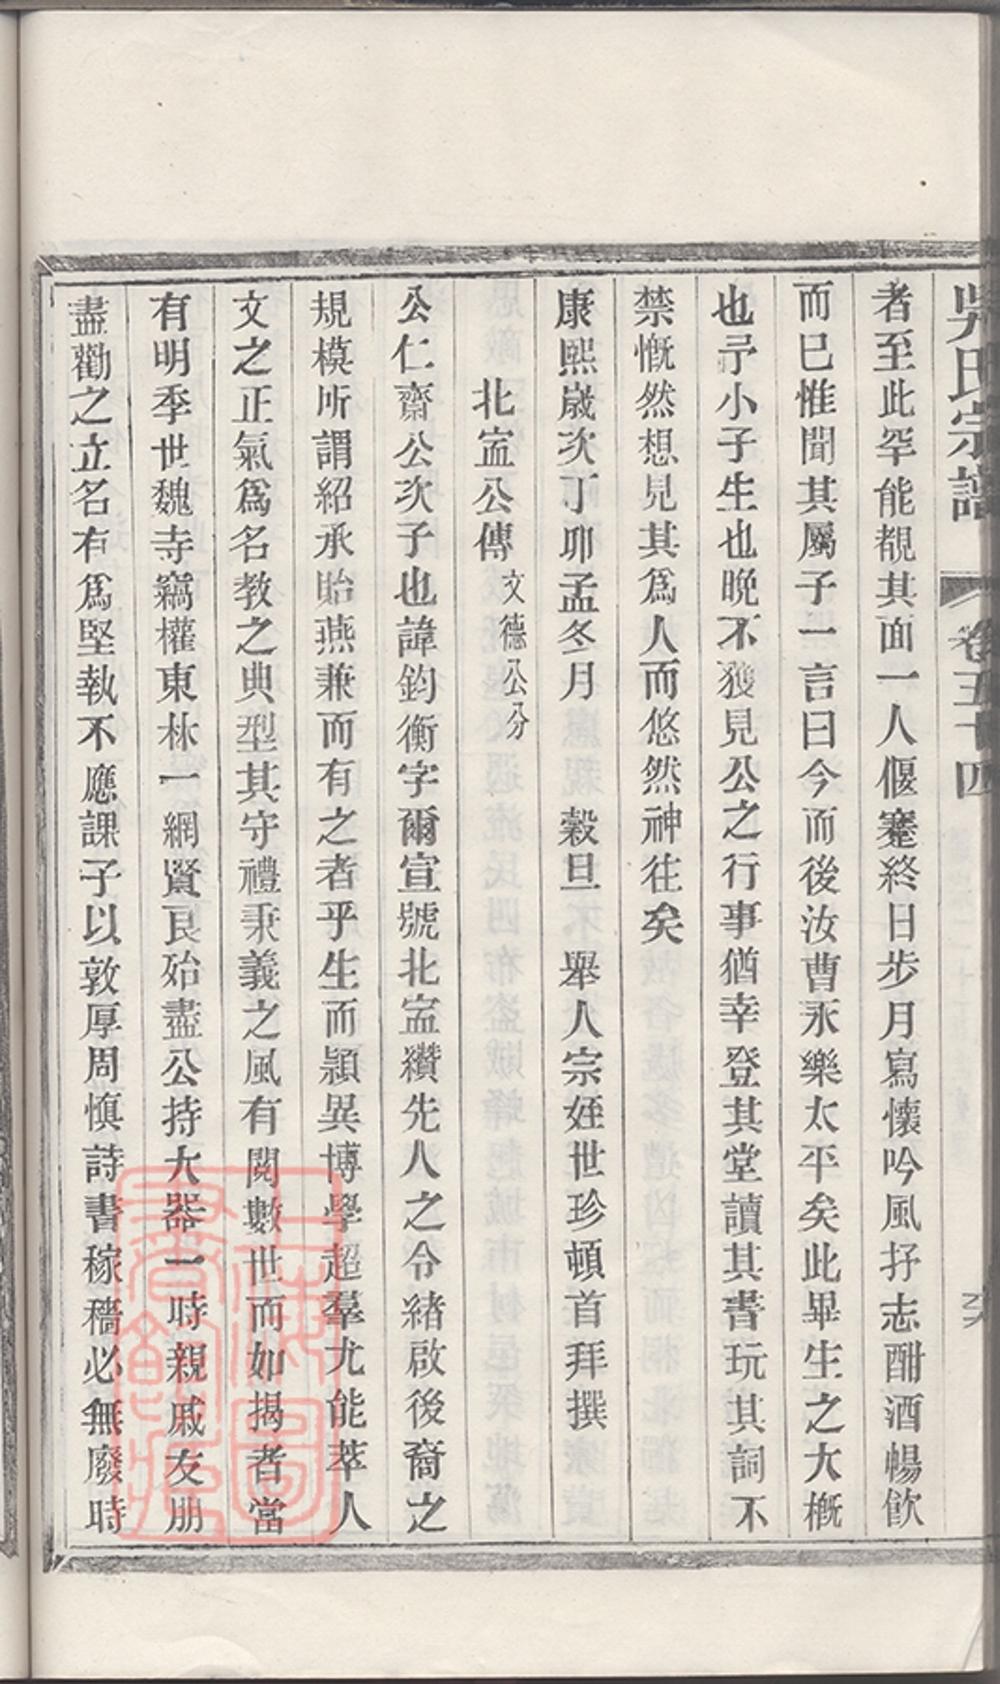 吳氏宗譜 卷五十四
者至此罕能覩其面一人偃蹇終日步月寫懷吟風抒志酣酒暢飲
而已惟聞其屬子一言曰今而後汝曹永樂太平矣此畢生之大概
也予小子生也晚不獲見公之行事猶幸登其堂讀其書玩其詞不
禁慨然想見其爲人而悠然神往矣
康熙歲次丁卯孟冬月 穀旦 舉人宗姪世珍頓首拜撰
北㝉公傳 文德公分
公仁齋公次子也諱鈞衡字爾宣號北㝉纘先人之令緒啟後裔之
規模所謂紹承貽燕兼而有之者乎生而頴異博學超羣尤能萃人
文之正氣爲名教之典型其守禮秉義之風有閱數世而如揭者當
有明季世魏寺竊權東林一網賢良殆盡公持大器一時親戚友朋
盡勸之立名有爲堅執不應課子以敦厚周愼詩書稼穡必無廢時
上海圖書館藏